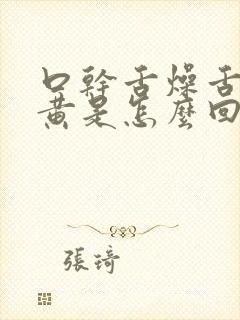 口幹舌燥舌
黃是怎麼回
張琦